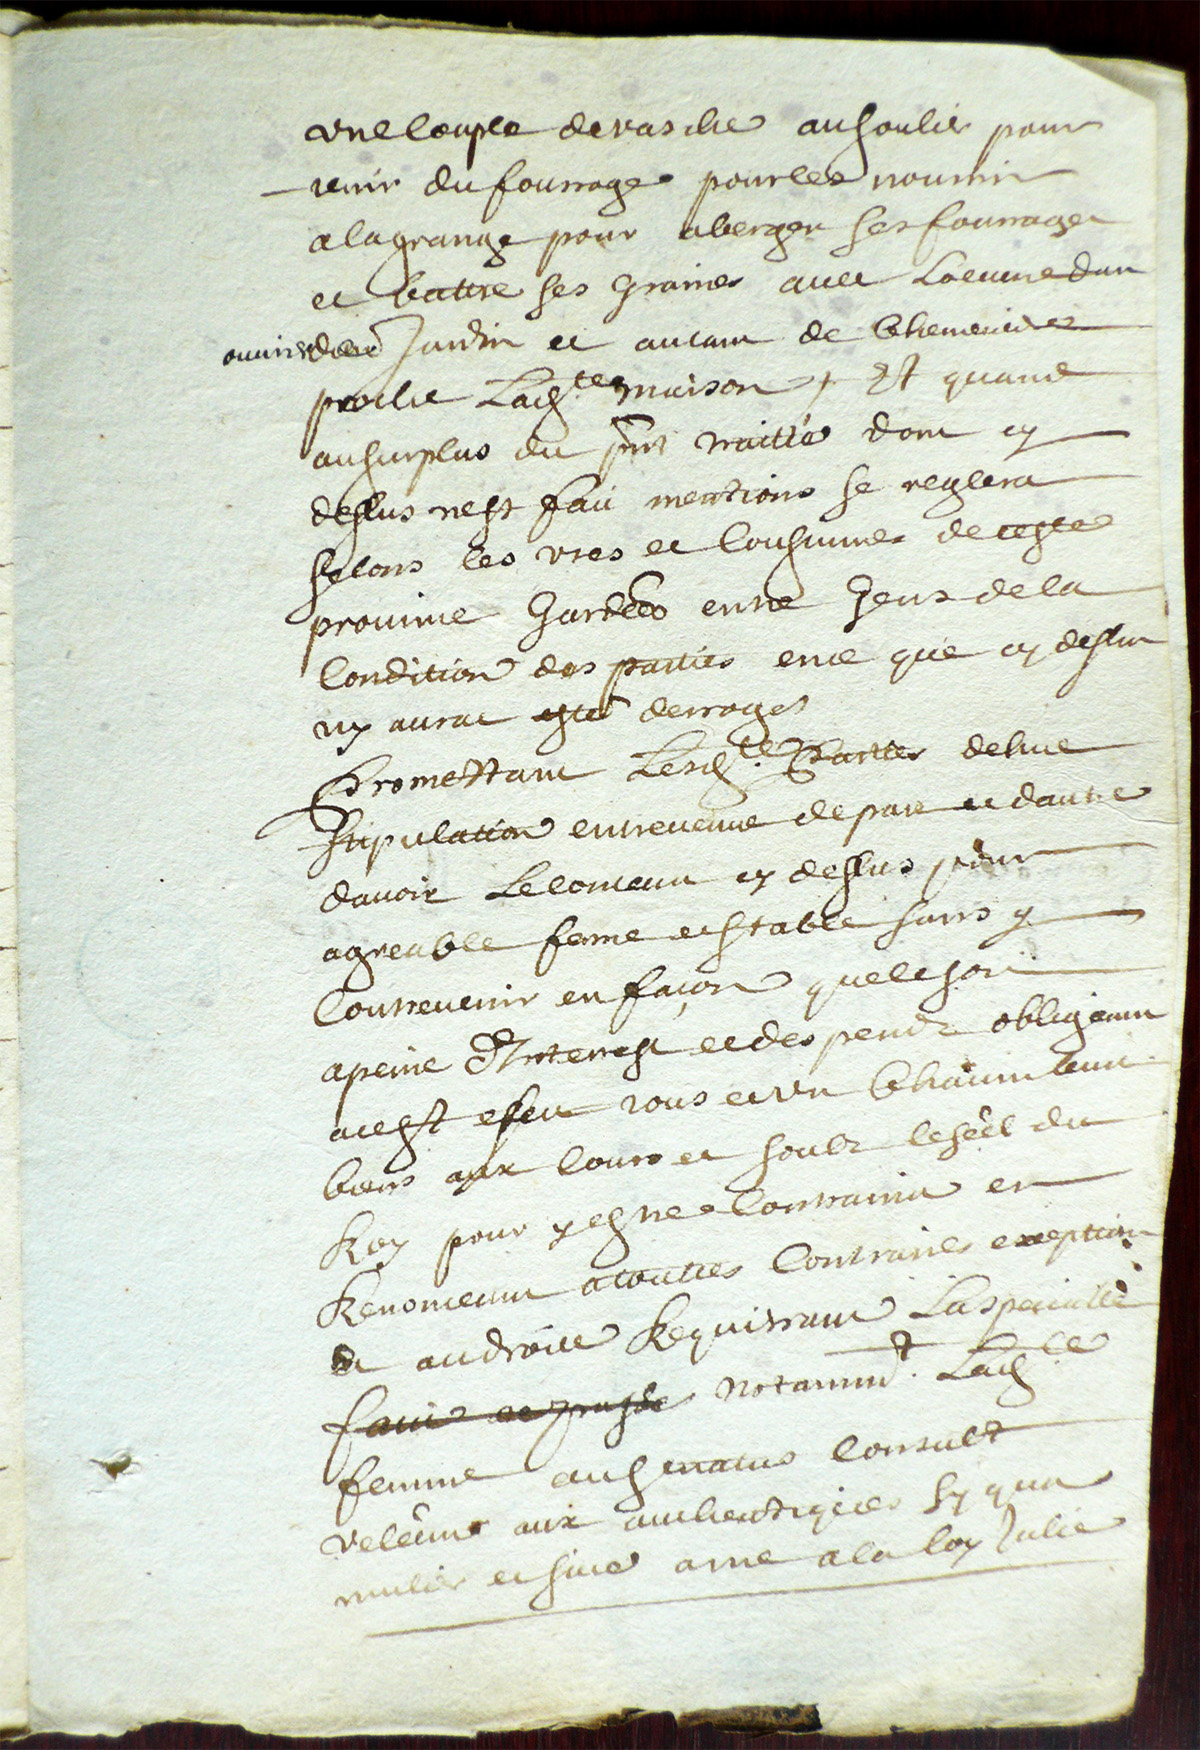 une couple de vasche au soulier pour
tenir du fourrage pour les nourrir
a la grange pour aberger ses fourrages
et battre ses graines avec Loeuvre dun
ouvrier Jardin et autant de cheneviere
proche Lad.te maison, Et quand
au surplus du pnt traitté dont cy
dessus nest fait mentions se reglera
selons les uses et Coustumes de ceste
province Gardées entre Gens de la
Condition des parties en ce que cy dessus
ny aurat esté derrogé
Promettant Lesd.te Parties de hue
stipulation entrevenue de part et dautre
davoir Le contenu cy dessus pour
agreable ferme et stable sans y
Contrevenir en façon que ce soit
a peine D'Interest et despendz obligeant
a cest effect tous et un chacun leurs
biens aux Cours et soubz le séel du
Roy pour y estre Contraint et
Renonceant a touttes Contraires exeptions
et au droict Requierant La specialté
notamm.t Lad.te
femme au senatus Consult
veleïant aux authentiques sy qua
mulier et sive a me a la loy Julie